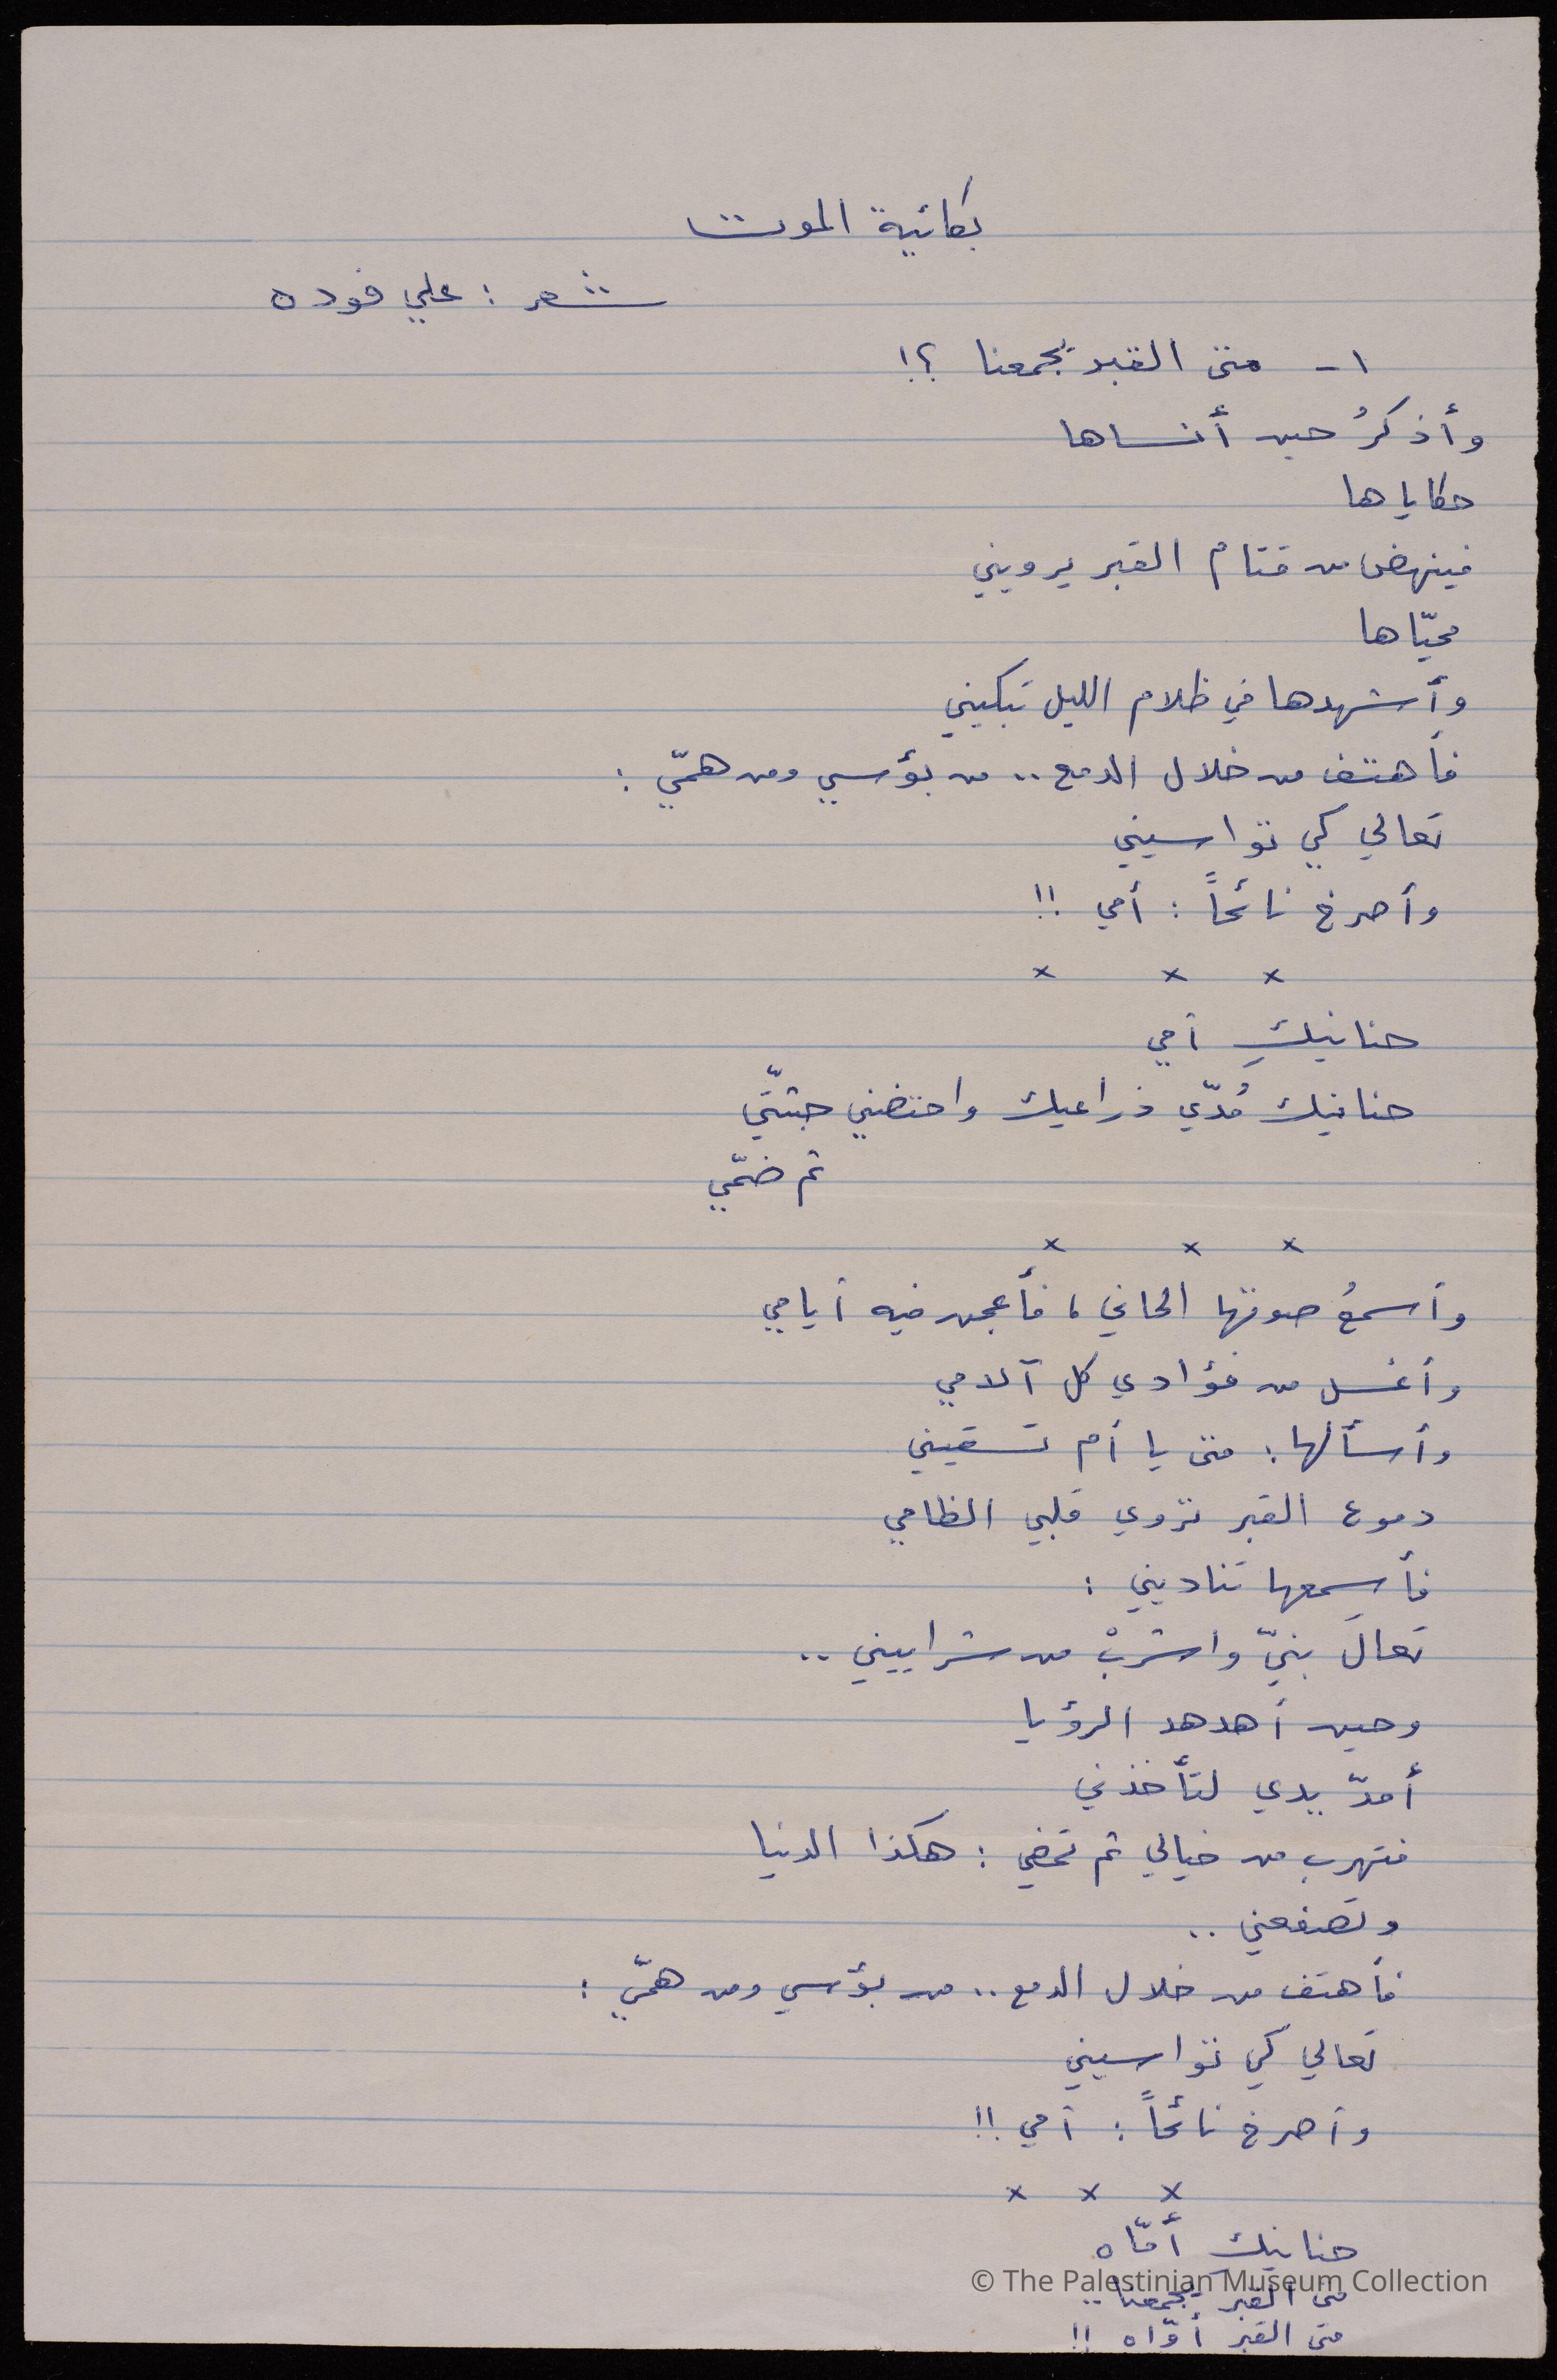 بكائية الموت
شعر : علي فوده
١ - متى القبر يجمعنا ؟!
وأذكرُ حين أنساها
حكاياها
فينهض من قتام القبر يرويني
محيّاها
وأشهدها في ظلام الليل تبكيني
فأهتف من خلال الدمع .. من بؤسي ومن همّي :
تعالي كي تواسيني
وأصرخ نائحاً : أمي !!
× × ×
حنانيكِ أمي
حنانيك مُدّي ذراعيك واحتضني جثتّي
ثم ضمّي
× × ×
وأسمعُ صوتها الحاني ، فأعجن فيه أيامي
وأغسل من فؤادي كل آلامي
وأسألها : متى يا أم تسقيني
دموع القبر تروي قلبي الظامي
فأسمعها تناديني :
تعالَ بنيّ واشربْ من شراييني ..
وحين أهدهد الرؤيا
أمدّ يدي لتأخذني
فتهرب من خيالي ثم تمضي : هكذا الدنيا
وتصفعني ..
فأهتف من خلال الدمع .. من بؤسي ومن همّي :
تعالي كي تواسيني
وأصرخ نائحاً : أمي !!
× × ×
حنانيكِ أمّاه
© The Palestinian Museum Collection
متى القبر يجمعنا ..
متى القبر أوّاه !!